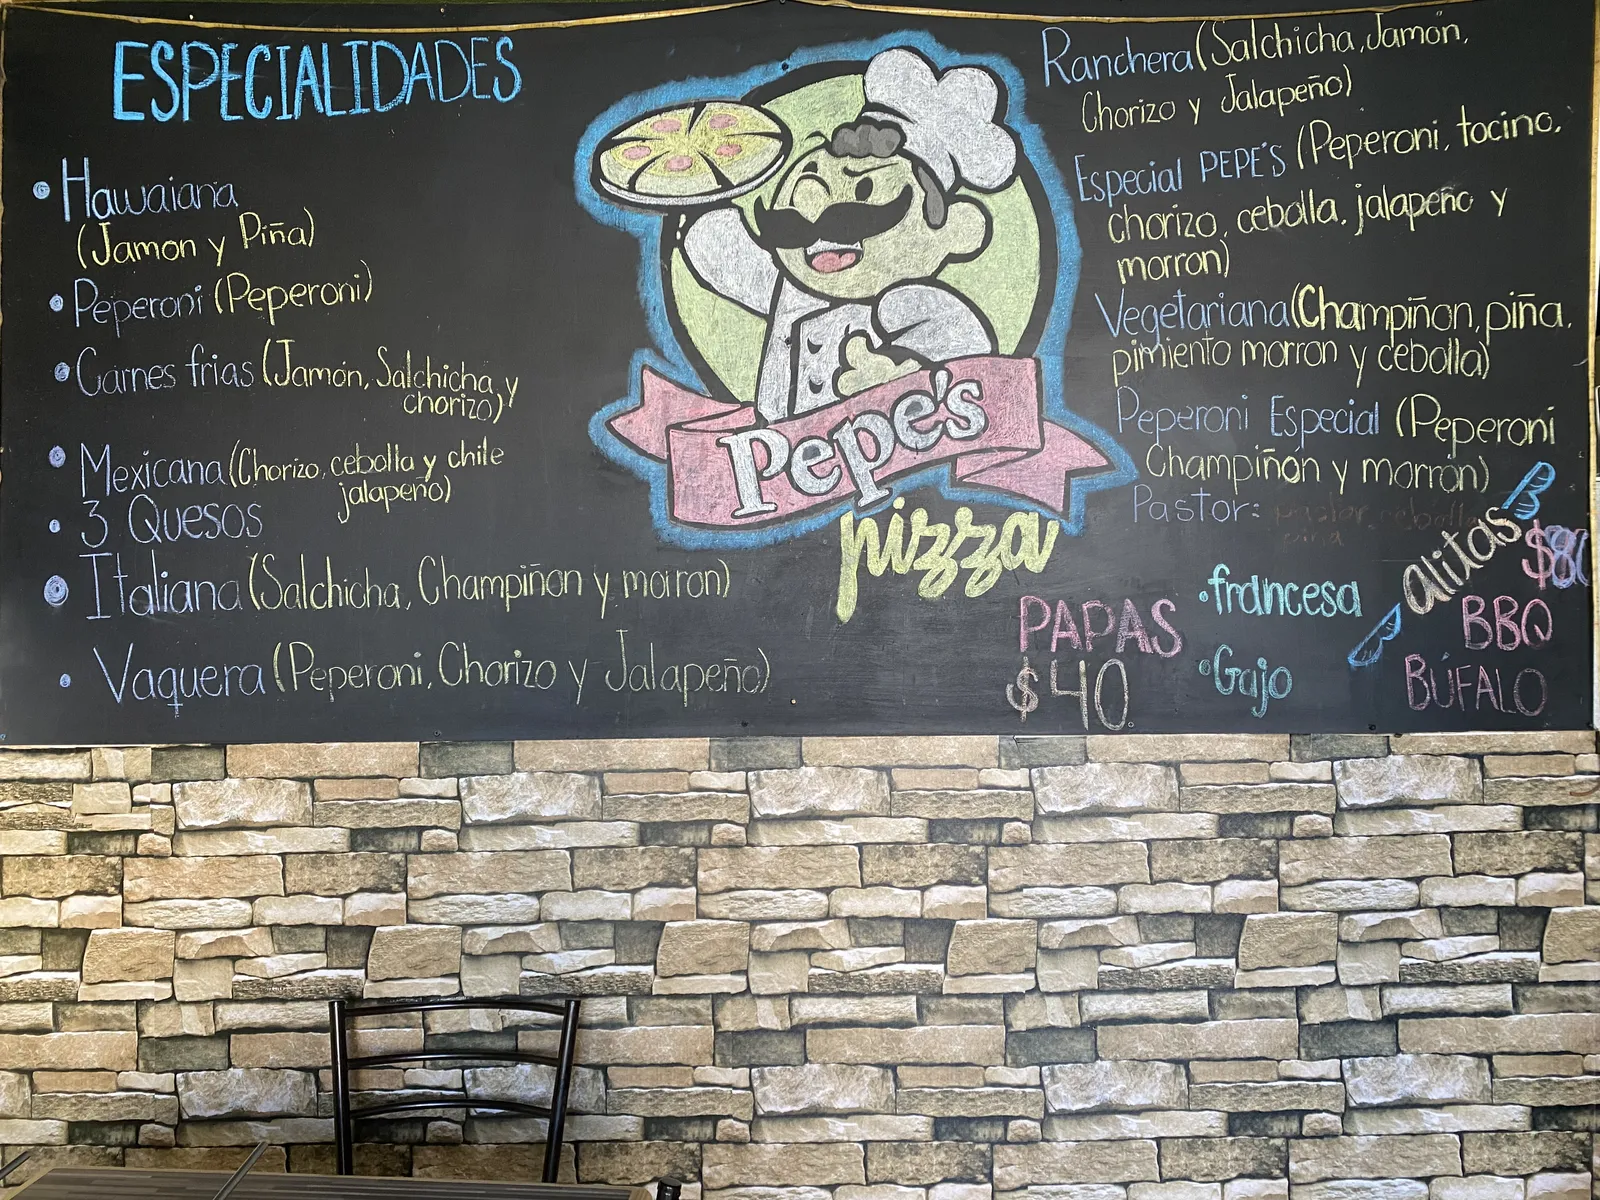 ESPECIALIDADES
Hawaiana
(Jamon y Piña)
Peperoni (Peperoni)
Carnes frias (Jamón, Salchicha y
chorizo)
Mexicana (Chorizo, cebolla y chile
jalapeño)
3 Quesos
Italiana (Salchicha, Champiñon y morron)
Vaquera (Peperoni, Chorizo y Jalapeño)
Pepe's
pizza
Ranchera (Salchicha, Jamón,
Chorizo y Jalapeño)
Especial PEPE'S (Peperoni, tocino,
chorizo, cebolla, jalapeño y
morron)
Vegetariana (Champiñon, piña,
pimiento morron y cebolla)
Peperoni Especial (Peperoni
Champiñon y morron)
Pastor: pastor, cebolla
piña
PAPAS
$40
francesa
Gajo
alitas
$80
BBQ
BÚFALO